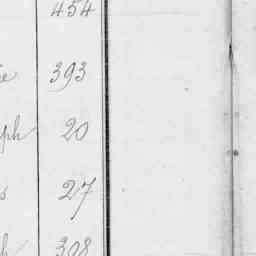 454
393
ph 20
27
308